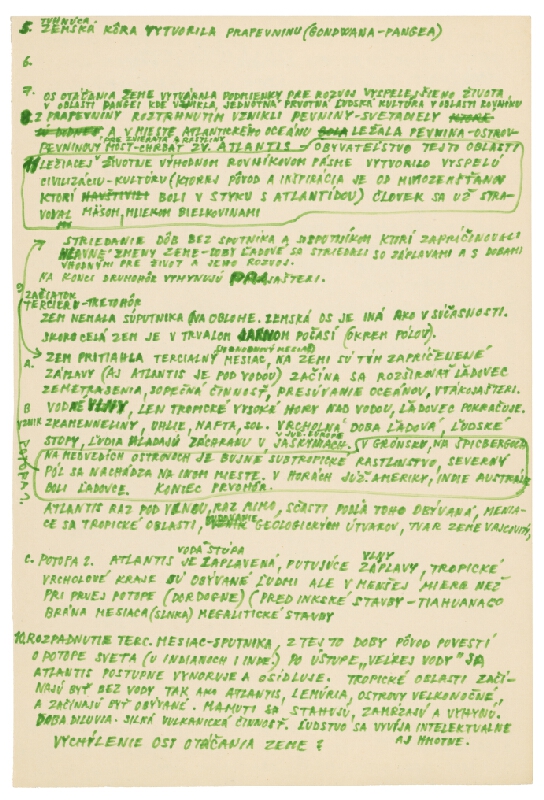 TUHNÚCA
5. ZEMSKÁ KÔRA VYTVORILA PRAPEVNINU (GONDWANA-PANGEA)
6.
7. OS OTÁČANIA ZEME VYTVÁRALA PODMIENKY PRE ROZVOJ VYSPELEJŠIEHO ŽIVOTA
V OBLASTI PANGEI KDE VZNIKLA, JEDNOTNÁ PRVOTNÁ ĽUDSKÁ KULTÚRA V OBLASTI ROVNÍKU
8. Z PRAPEVNINY ROZTRHNUTÍM VZNIKLI PEVNINY-SVETADIELY
A V MIESTE ATLANTICKÉHO OCEÁNU LEŽALA PEVNINA-OSTROV
PRE ZVIERATÁ A RASTLINY
PEVNINOVÝ MOST-CHRBÁT ZV. ATLANTIS - OBYVATEĽSTVO TEJTO OBLASTI
LEŽIACEJ ŽIVOTNE VÝHODNOM ROVNÍKOVOM PÁSME VYTVORILO VYSPELÚ
CIVILIZÁCIU-KULTÚRU (KTOREJ PÔVOD A INŠPIRÁCIA JE OD MIMOZEMŠŤANOV
KTORÍ NAVŠTÍVILI BOLI V STYKU S ATLANTÍDOU) ČLOVEK SA UŽ STRA-
VOVAL MÄSOM, MLIEKOM BIELKOVINAMI
STRIEDANIE DÔB BEZ SPUTNIKA A SO SPUTNÍKOM KTORÍ ZAPRÍČINOVALI
HLAVNÉ ZMENY ZEME-DOBY ĽADOVÉ SA STRIEDALI SO ZÁPLAVAMI A S DOBAMI
VHODNÝMI PRE ŽIVOT A JEHO ROZVOJ.
NA KONCI DRUHOHÔR VYHYNULI PRAJAŠTERI.
9 ZAČIATOK
TERCIERU-TRETOHÔR
ZEM NEMALA SÚPUTNÍKA (NA OBLOHE. ZEMSKÁ OS JE INÁ AKO V SÚČASNOSTI.
SKORO CELÁ ZEM JE V TRVALOM JARNOM POČASÍ (OKREM PÓLOV).
A. ZEM PRITIAHLA TERCIALNÝ MESIAC, NA ZEMI SÚ TÝM ZAPRÍČENENÉ
ZÁPLAVY (AJ ATLANTIS JE POD VODOU) ZAČÍNA SA ROZŠIROVAŤ ĽADOVEC
ZEMETRASENIA, SOPEČNÁ ČINNOSŤ, PRESÚVANIE OCEÁNOV, VTÁKOJAŠTERI.
B VODNÉ VLNY, LEN TROPICKÉ VYSOKÁ HORY NAD VODOU, ĽADOVEC POKRAČUJE.
VZNIK ZKAMENNELINY, UHLIE, NAFTA, SOĽ. VRCHOLNÁ DOBA ĽADOVÁ, ĽUDSKÉ
V JUŽ. EUROPE
STOPY, ĽUDIA HĽADAJÚ ZÁCHRANU V JASKYNIACH. V GRÓNSKU, NA ŠPICBERGOCH
POTOPA 1.
NA MEDVEDÍCH OSTROVOCH JE BUJNÉ SUBTROPICKÉ RASTLINSTVO, SEVERNÝ
PÓL SA NACHÁDZA NA INOM MIESTE. V HORÁCH JUŽ. AMERIKY, INDIE AUSTRÁLIE
BOLI ĽADOVCE. KONIEC PRVOHÔR.
ATLANTIS RAZ POD VLNOU, RAZ MIMO, SČASTI PODĽA TOHO OBÝVANÁ, MENIA-
CE SA TROPICKÉ OBLASTI, GEOLOGICKÝCH ÚTVAROV, TVAR ZEME
VODA STÚPA VLNY
C. POTOPA 2. ATLANTIS JE ZAPLAVENÁ, PUTUJÚCE ZÁPLAVY, TROPICKÉ
VRCHOLOVÉ KRAJE SÚ OBÝVANÉ ĽUDMI ALE V MENŠEJ MIERE NEŽ
PRI PRVEJ POTOPE (DORDOGNE) (PREDINKSKÉ STAVBY-TIAHUANACO
BRÁNA MESIACA (SLNKA) MEGALITICKÉ STAVBY
10. ROZPADNUTIE TERC. MESIAC-SPUTNIKA, Z TEJTO DOBY PÔVOD POVESTÍ
O POTOPE SVETA (U INDIANOCH I INDE) PO ÚSTUPE „VEĽKEJ VODY" SA
ATLANTIS POSTUPNE VYNORUJE A OSÍDĽUJE. TROPICKÉ OBLASTI ZAČÍ-
NAJÚ BYŤ BEZ VODY TAK AKO ATLANTIS, LEMÚRIA, OSTROVY VEĽKONOČNÉ,
A ZAČÍNAJÚ BYŤ OBÝVANÉ. MAMUTI SA SŤAHUJÚ, ZAMŔZAJÚ A VYHYNÚ.
DOBA DILUVIA. SILNÁ VULKANICKÁ ČINNOSŤ. ĽUDSTVO SA VYVÍJA INTELEKTUALNE
AJ HMOTNE.
VYCHÝLENIE OSI OTÁČANIA ZEME ?